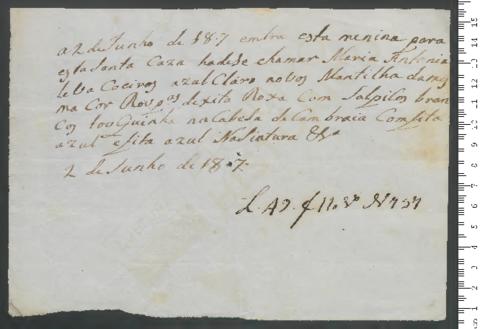 a 2 de Junho de 18.7 emtra esta menina para
esta Santa Caza hadese chamar Maria Antonia
leva Coeiros azul Claro novos Mantilha da mes
ma Cor de xito Roxa Com Salpicos bran
cos touquinha na cabesa de Cambraia Com fita
azul e fita azul Na Sintura &a
2 de Junho de 18.7.
L. A